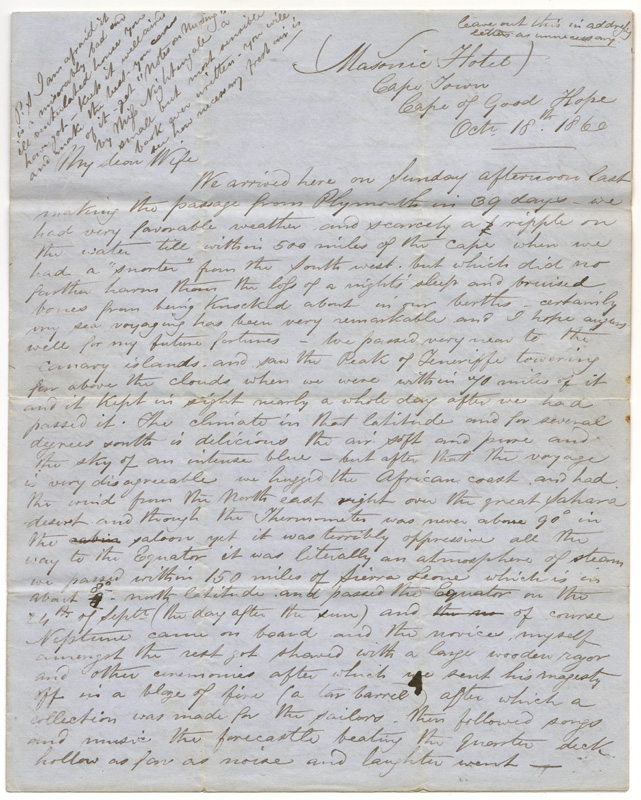 leave out this in addressing
letter as unnecessary
(Masonic Hotel)
Cape Town
Cape of Good Hope
Octr 18th. 1860
P.S. I am afraid it
is a miserably bad and
ill ventilated house you
have got - Keep it well aired
and make the best you can
of it. get "Notes on Nursing"
by Miss Nightingale, a
small but most sensible
book ever written. you will
see how necessary fresh air is
My dear Wife
We arrived here on Sunday afternoon last
making the passage from Plymouth in 39 days we
had very favorable weather and scarcely a ripple on
the water till within 500 miles of the Cape when we
had a "snorter" from the South west. but which did no
further harm than the loss of a nights sleep and bruised
bones from being knocked about in our berths - certainly
my sea voyaging has been very remarkable and I hope augurs
well for my future fortunes - We passed very near to the
Canary islands. and saw the Peak of Teneriffe towering
far above the clouds when we were within 40 miles of it
and it kept in sight nearly a whole day after we had
passed it. The climate in that latitude and for several
degrees south is delicious the air soft and pure and
the sky of an intense blue - but after that the voyage
is very disagreeable we hugged the African coast. and had
the wind from the North east right over the great Sahara
desert and though the Thermometer was never above 90° in
the cabin saloon yet it was terribly oppressive all the
way to the Equator it was literally an atmosphere of steam
we passed within 150 miles of Sierra Leone which is in
about 8° north latitude. and passed the Equator on the
24th of Septr (the day after the sun) and of course
Neptune came on board and the novices, myself
amongst the rest got shaved with a large wooden razor
and other ceremonies after which we sent his majesty
off in a blaze of fire (a tar barrel) after which a
collection was made for the sailors. then followed songs
and music the forecastle beating the quarter deck
hollow as far as noise and laughter went —